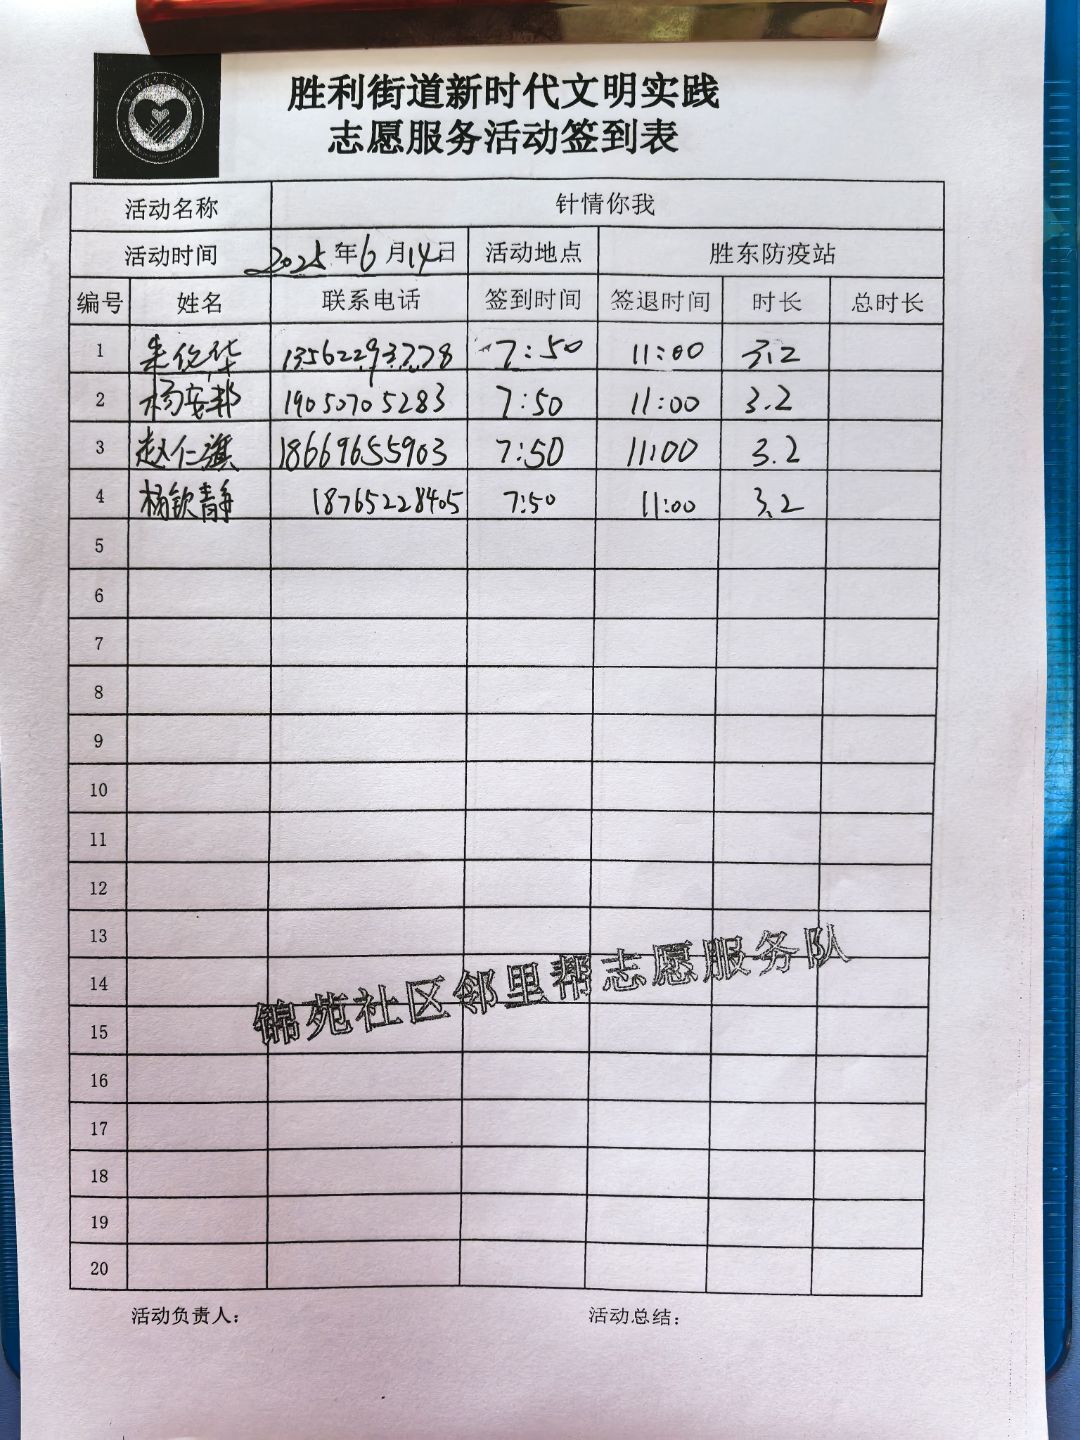 胜利街道新时代文明实践
志愿服务活动签到表
活动名称 针情你我
活动时间 2025年6月14日 活动地点 胜东防疫站
编号 姓名 联系电话 签到时间 签退时间 时长 总时长
1 华 13562293778 7:50 11:00 3.2
2 杨安邦 19050705283 7:50 11:00 3.2
3 赵仁旗 18669655903 7:50 11:00 3.2
4 杨钦静 18765228405 7:50 11:00 3.2
5
6
7
8
9
10
11
12
13
14
15
锦苑社区邻里帮志愿服务队
16
17
18
19
20
活动负责人: 活动总结: